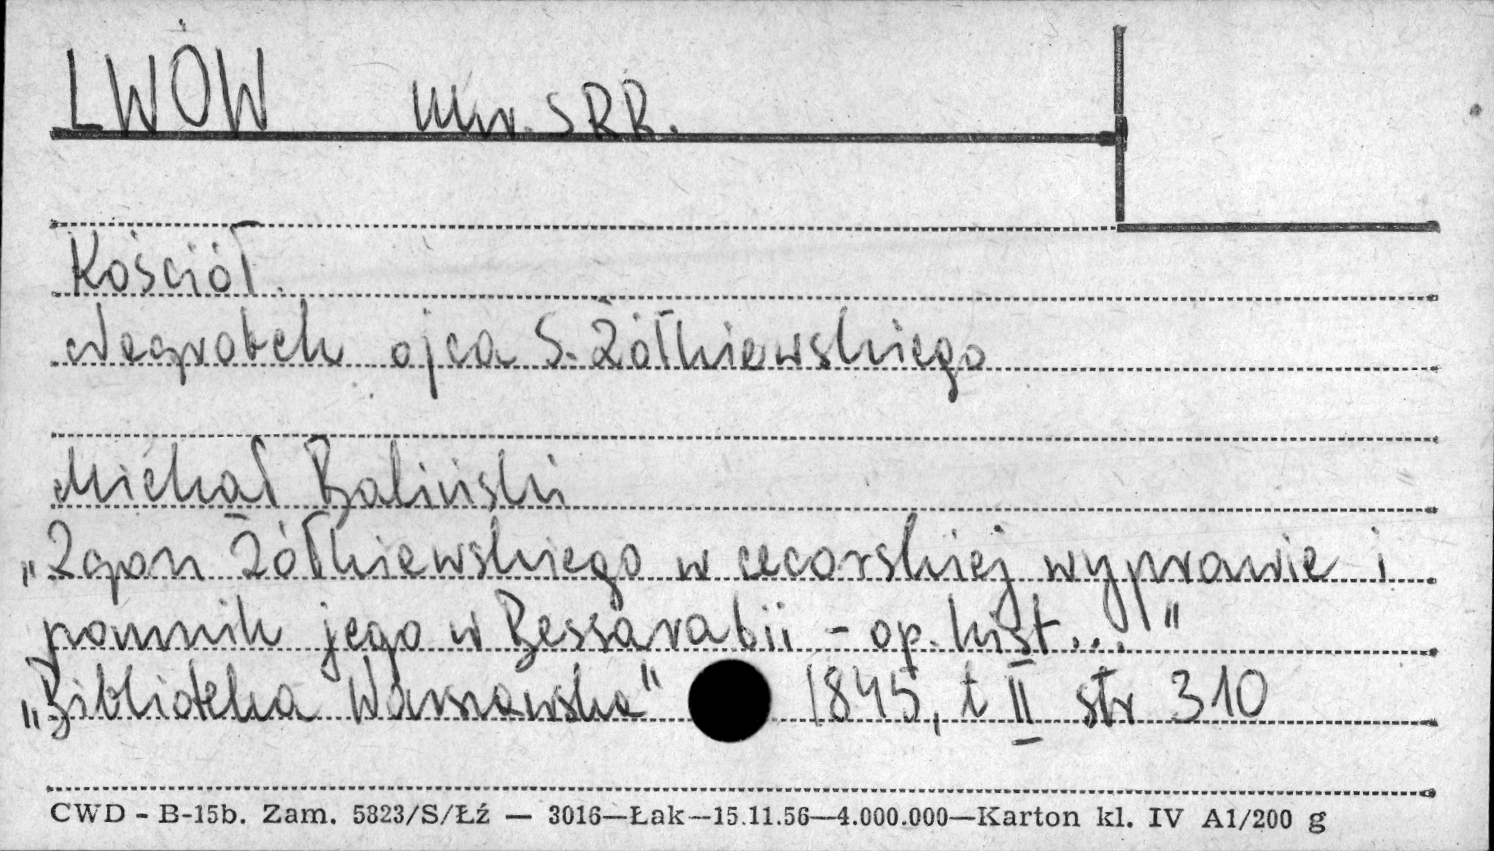 LWÓW Ukr. SRR.
Kościół.
Nagrobek ojca S. Żółkiewskiego
Michał Baliński
„Zgon Żółkiewskiego w cecorskiej wyprawie i
pomnik jego w Bessarabii - op. hist..."
„Biblioteka Warszawska" 1845, t II str 310
CWD - B-15b. Zam. 5823/S/Łź — 3016—Łak—15.11.56—4.000.000—Karton kl. IV A1/200 g